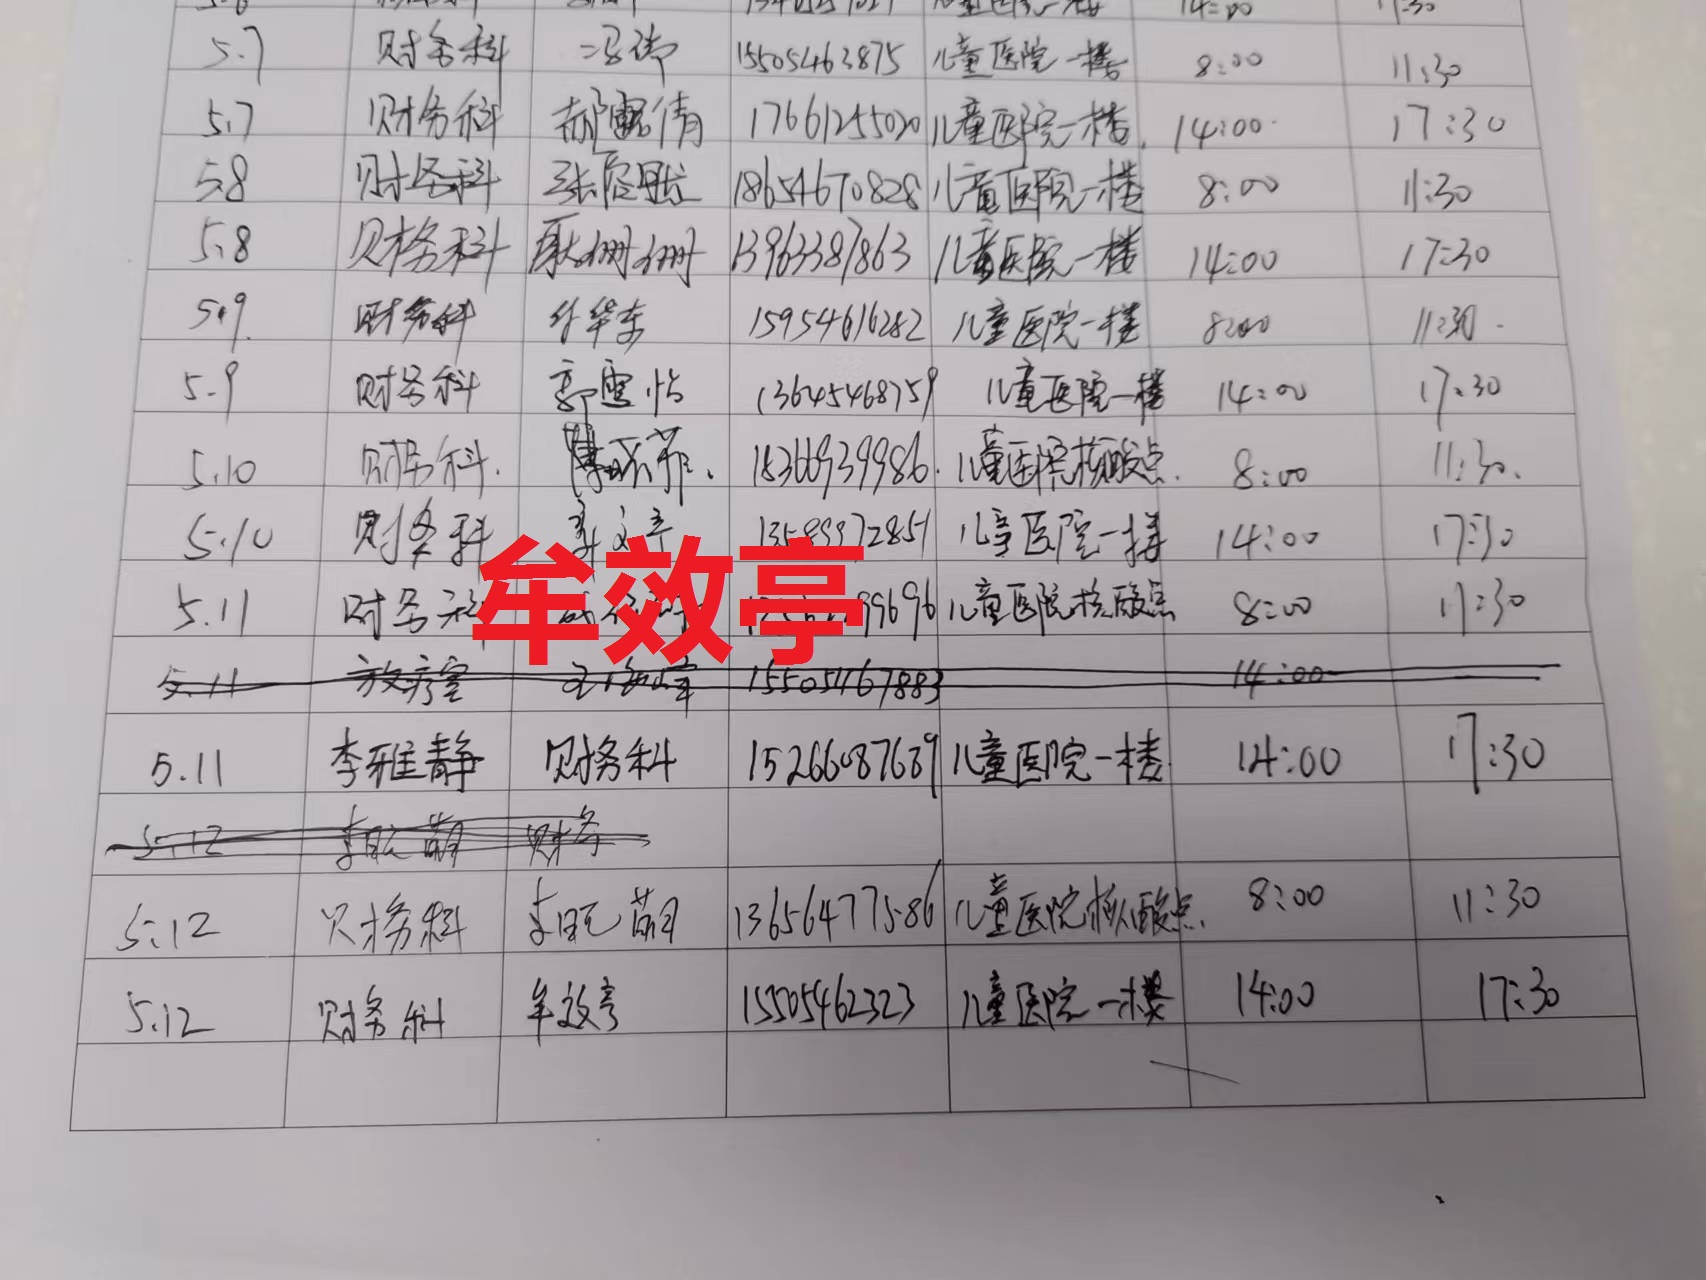 5.7 财务科 15505463875 儿童医院一楼 8:00 11:30
5.7 财务科 郝露倩 17661255020 儿童医院一楼 14:00 17:30
5.8 财务科 18654670828 儿童医院一楼 8:00 11:30
5.8 财务科 13963387863 儿童医院一楼 14:00 17:30
5.9 财务科 华东 15954616282 儿童医院一楼 8:00 11:30
5.9 财务科 郭雪怡 13645468759 儿童医院一楼 14:00 17:30
5.10 财务科 18366939986 儿童医院核酸点 8:00 11:30
5.10 财务科 儿童医院一楼 14:00 17:30
牟效亭
5.11 财务科 儿童医院核酸点 8:00 11:30
5.11 放疗室 15505467883 14:00
5.11 李雅静 财务科 15266087689 儿童医院一楼 14:00 17:30
5.12 李 萌 财务
5.12 财务科 李 萌 13656477586 儿童医院核酸点 8:00 11:30
5.12 财务科 牟效亭 15505462323 儿童医院一楼 14:00 17:30